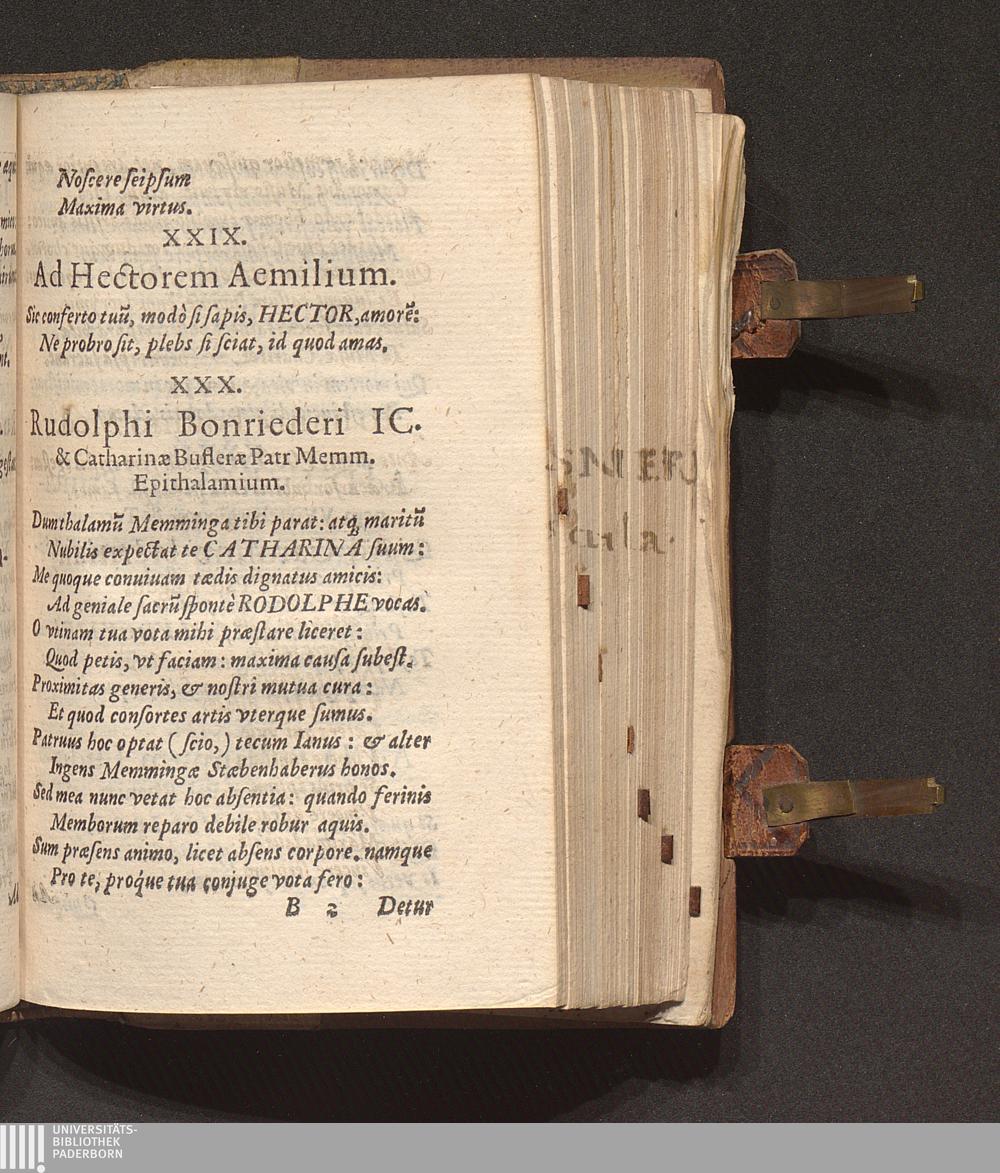 Noſcere ſeipſum
Maxima virtus.
XXIX.
Ad Hectorem Aemilium.
Sic conferto tuũ, modò ſi ſapis, HECTOR, amorẽ:
Ne probro ſit, plebs ſi ſciat, id quod amas.
XXX.
Rudolphi Bonriederi IC.
& Catharinæ Buſleræ Patr Memm.
Epithalamium.
Dum thalamũ Memminga tibi parat: atq; maritũ
Nubilis expectat te CATHARINA ſuum:
Me quoque conuiuam tædis dignatus amicis:
Ad geniale ſacrũ ſpontè RODOLPHE vocas.
O vtinam tua vota mihi præſtare liceret:
Quod petis, vt faciam: maxima cauſa ſubeſt.
Proximitas generis, & noſtri mutua cura:
Et quod conſortes artis vterque ſumus.
Patruus hoc optat (ſcio,) tecum Ianus: & alter
Ingens Memmingæ Stæbenhaberus honos.
Sed mea nunc vetat hoc abſentia: quando ferinis
Memborum reparo debile robur aquis.
Sum præſens animo, licet abſens corpore. namque
Pro te, próque tua conjuge vota fero:
B 2 Detur
UNIVERSITÄTS-
BIBLIOTHEK
PADERBORN